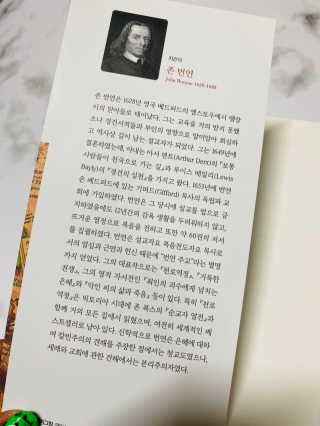 지은이
존 번연
John Bunyan 1628-1688
존 번연은 1628년 영국 베드퍼드의 엘스토우에서 땜장
이의 맏아들로 태어났다. 그는 교육을 거의 받지 못했
으나 경건서적들과 부인의 영향으로 말미암아 회심하
고 역사상 길이 남는 설교자가 되었다. 그는 1649년에
결혼하였는데, 아내는 아서 덴트(Arthur Dent)의 『보통
사람들이 천국으로 가는 길』과 루이스 베일리(Lewis
Bayly)의 『경건의 실천』을 가지고 왔다. 1653년에 번연
은 베드퍼드에 있는 기퍼드(Gifford) 목사의 독립파 교
회에 가입하였다. 번연은 그 당시에 설교를 법으로 금
지하였음에도 12년간의 감옥 생활을 두려워하지 않고,
뜨거운 열정으로 복음을 전하고 또한 약 60권의 저서
를 집필하였다. 번연은 설교자요 복음전도자요 목사로
서의 열심과 근면과 헌신 때문에 "번연 주교"라는 별명
까지 얻었다. 그의 대표작으로는 『천로역정』, 『거룩한
전쟁』, 그의 영적 자서전인 『죄인의 괴수에게 넘치는
은혜』와 『악인 씨의 삶과 죽음』 등이 있다. 특히 『천로
역정』은 빅토리아 시대에 존 폭스의 『순교자 열전』과
함께 거의 모든 집에서 읽혔으며, 여전히 세계적인 베
스트셀러로 남아 있다. 신학적으로 번연은 은혜에 대하
여 칼빈주의의 견해를 주장한 점에서는 청교도였으나,
세례와 교회에 관한 견해에서는 분리주의자였다.